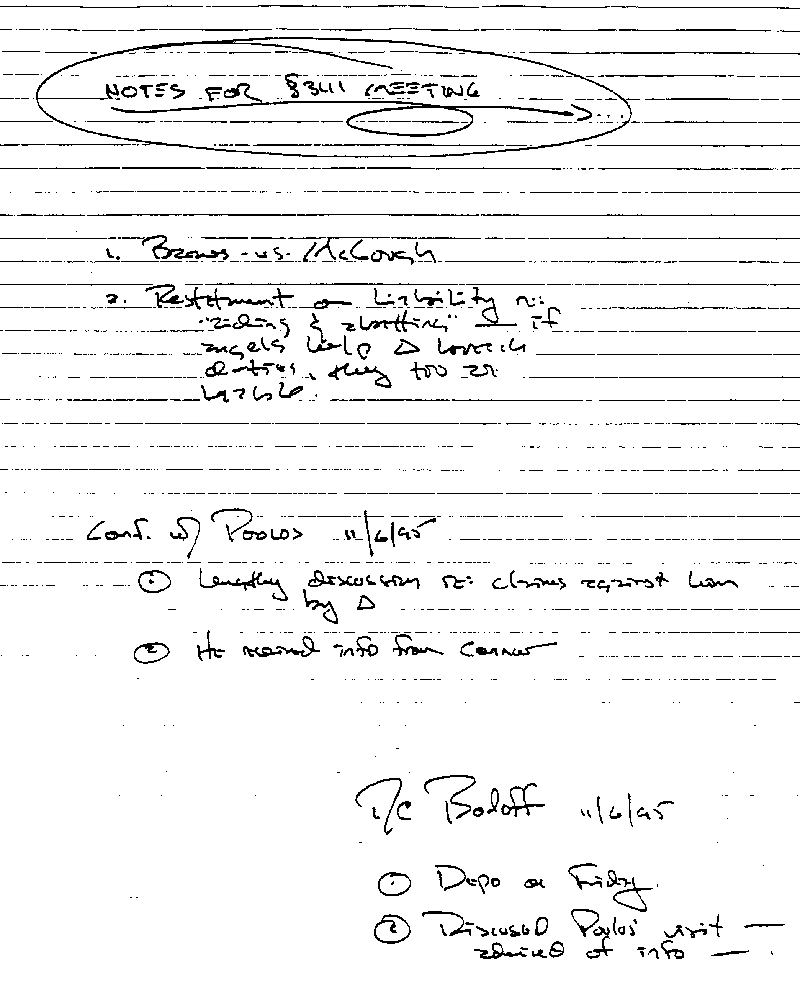 NOTES FOR §341 MEETING
1. Brown vs. McGough
2. Restatment on Liability re:
"aiding & abetting" — if
angels help Δ breach
duties, they too are
liable.
Conf. w/ Poulos 11/6/95
① Lengthy discussion re: claims against him
by Δ
② He received info from Connor
T/C Bodoff 11/6/95
① Depo on Friday
② Discussed Poulos' visit —
advised of info —